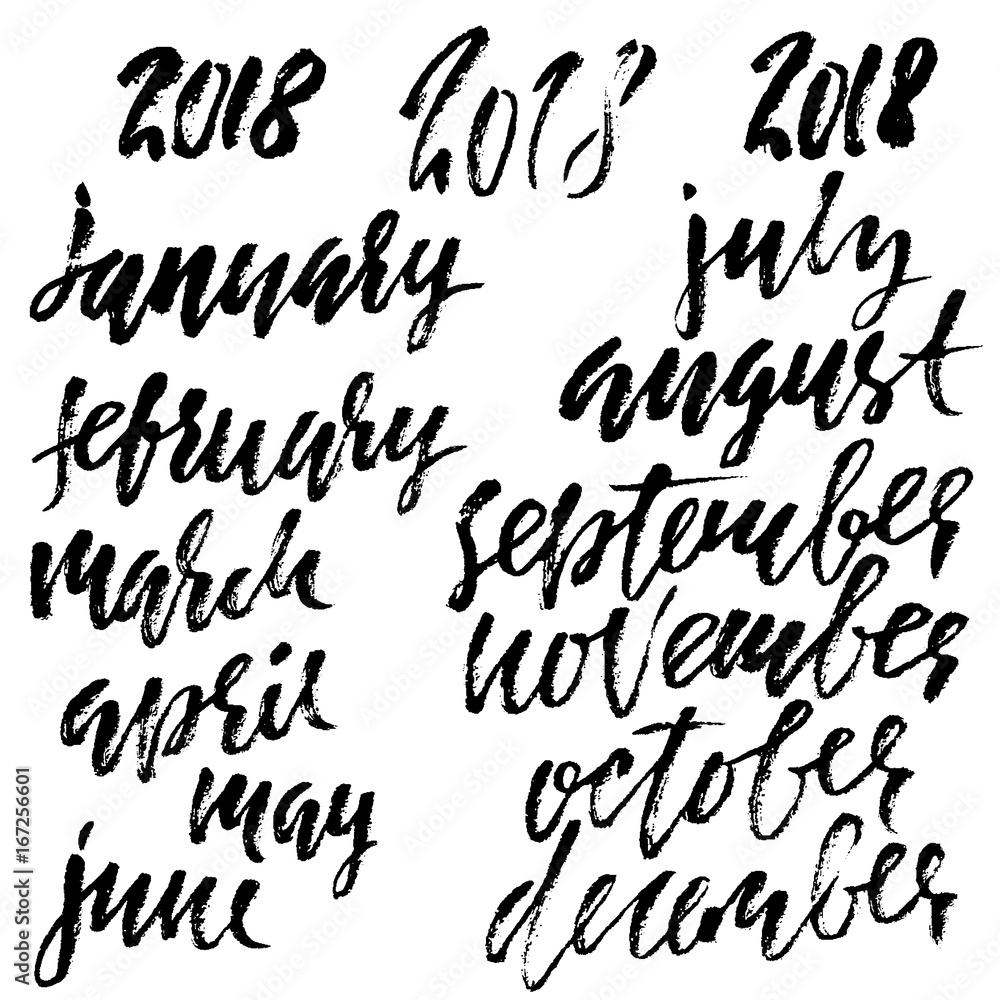 2018 2018 2018
january
february
march
april
may
june
july
august
september
november
october
december
Adobe Stock | #167256601